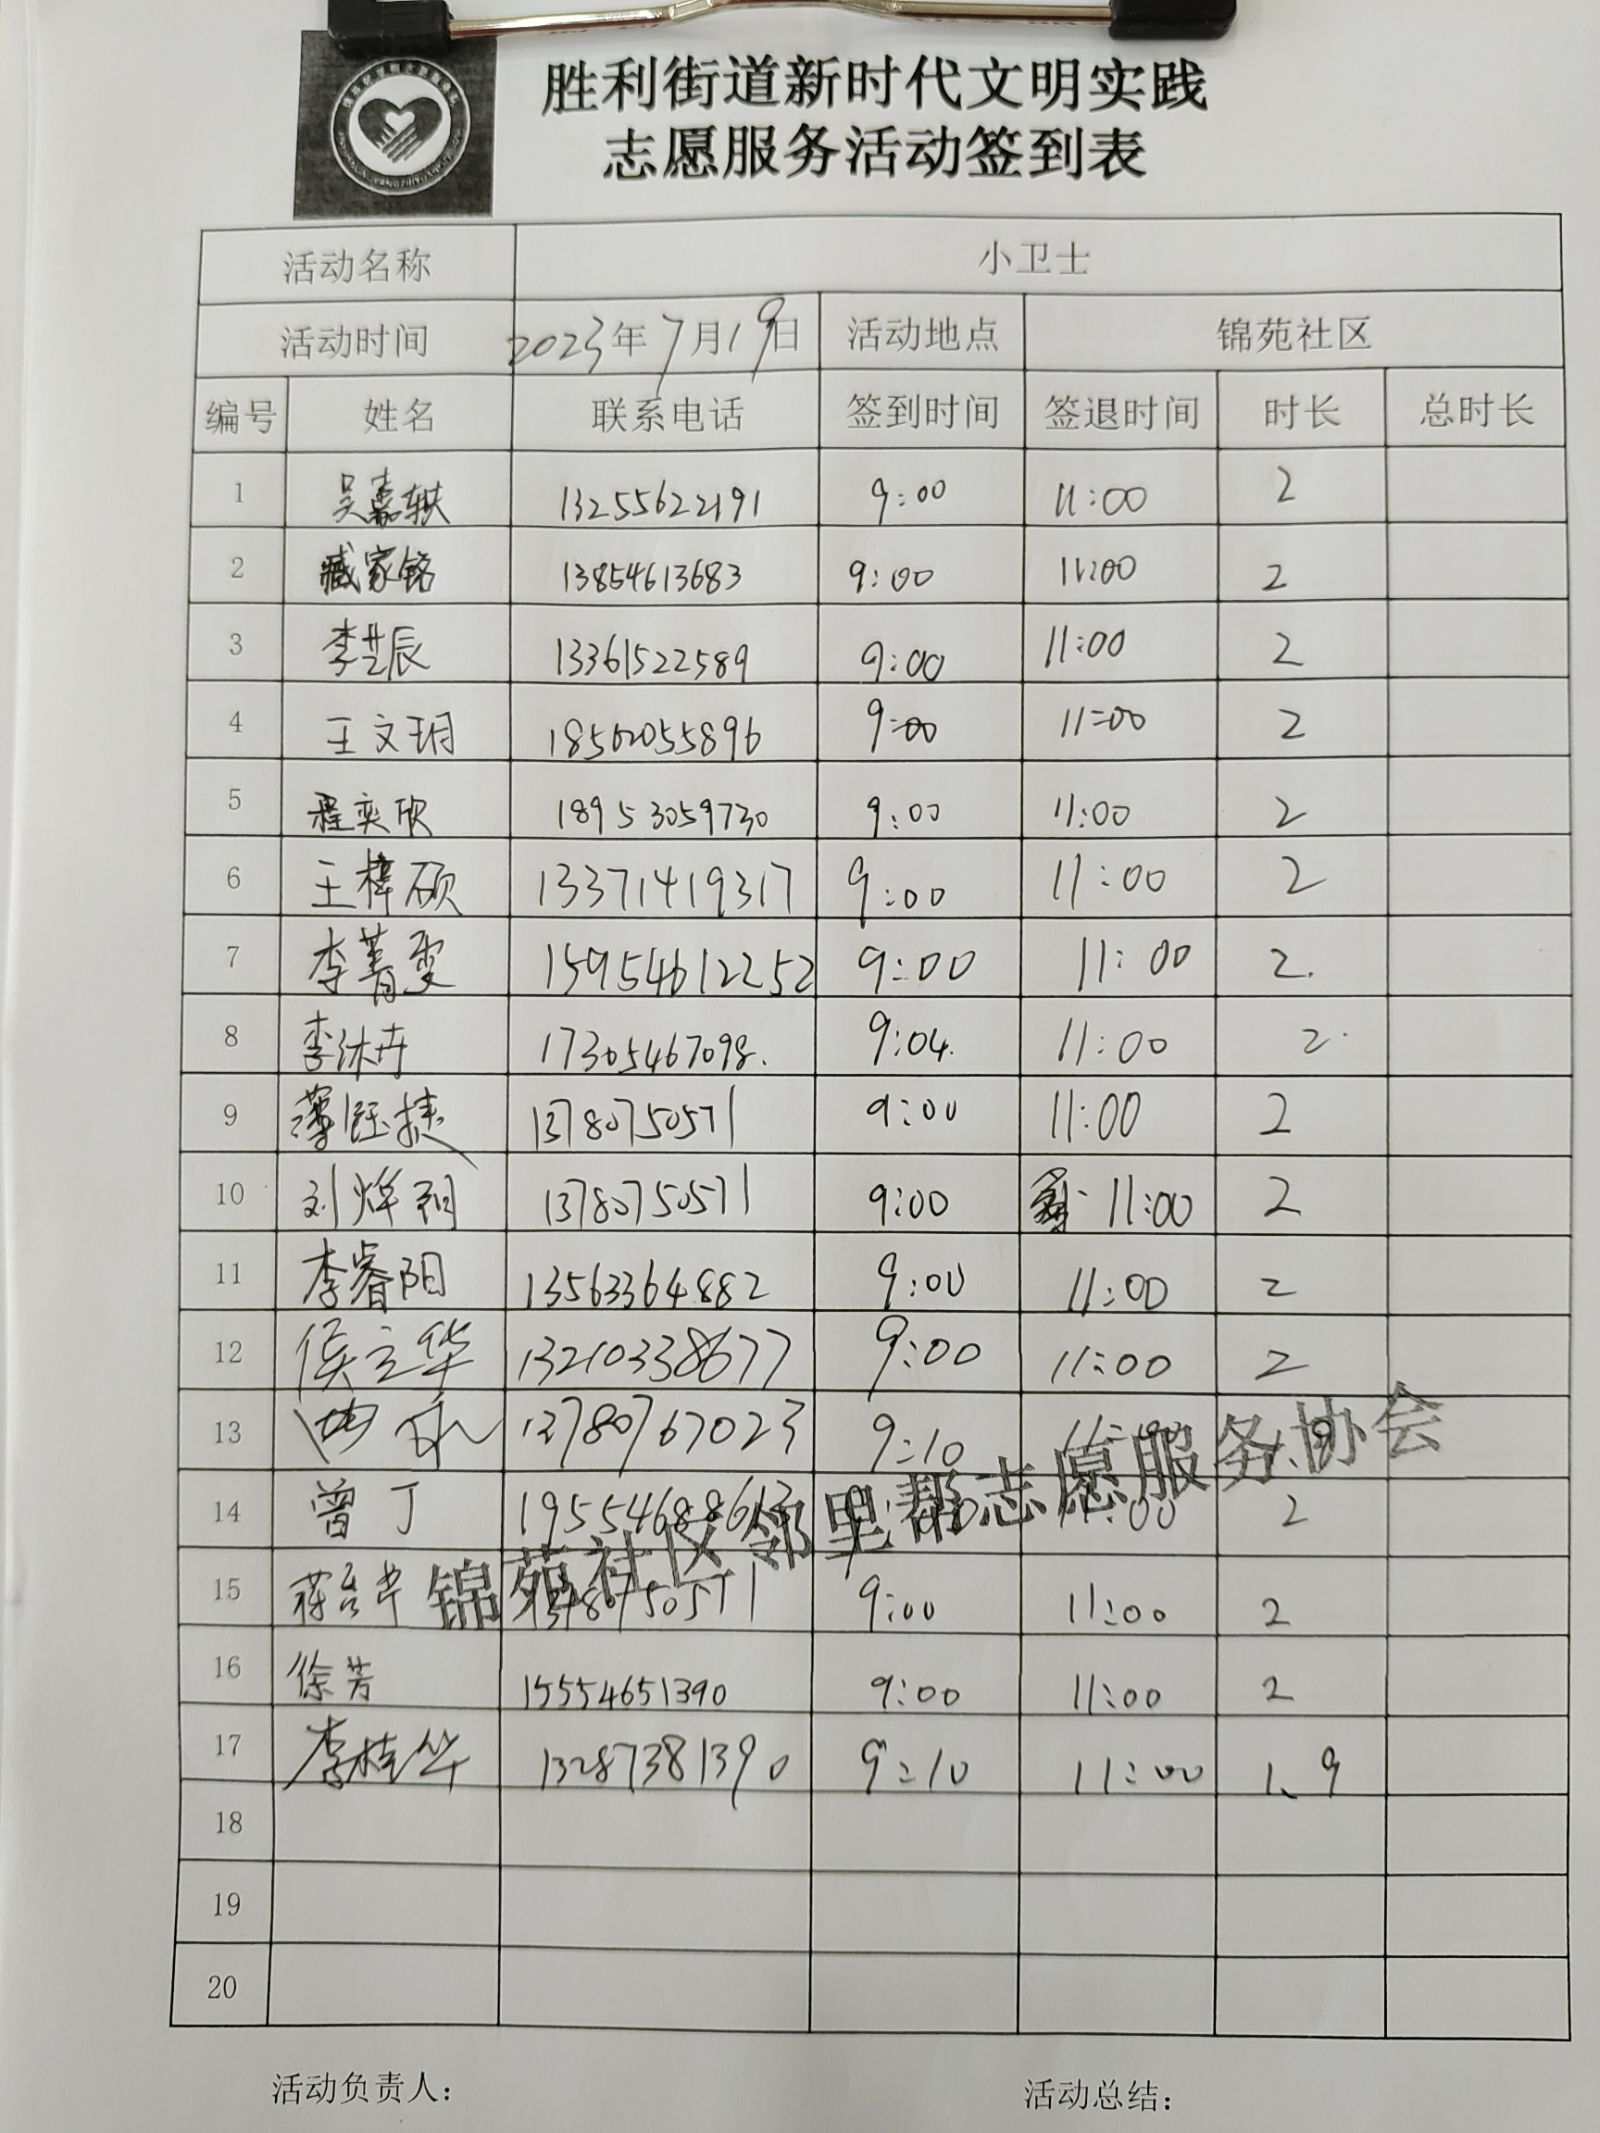 胜利街道新时代文明实践
志愿服务活动签到表
活动名称 小卫士
活动时间 2023年7月19日 活动地点 锦苑社区
编号 姓名 联系电话 签到时间 签退时间 时长 总时长
1 吴嘉轶 13255622191 9:00 11:00 2
2 臧家铭 13854613683 9:00 11:00 2
3 李芸辰 13361522589 9:00 11:00 2
4 王文玥 18562055896 9:00 11:00 2
5 程奕欣 18953059730 9:00 11:00 2
6 王梓硕 13371419317 9:00 11:00 2
7 李菁雯 15954612252 9:00 11:00 2.
8 李沐卉 17305467098. 9:04. 11:00 2.
9 薄钰捷 13780750571 9:00 11:00 2
10 刘烨羽 13780750571 9:00 11:00 2
11 李睿阳 13563364882 9:00 11:00 2
12 侯立华 13210338677 9:00 11:00 2
13 13780767023 9:10 11:00 1.9
14 曾丁 19554688613 9:00 11:00 2
锦苑社区邻里帮志愿服务协会
15 13780750571 9:00 11:00 2
16 徐芳 15554651390 9:00 11:00 2
17 李桂华 13287381390 9:10 11:00 1、9
18
19
20
活动负责人: 活动总结: